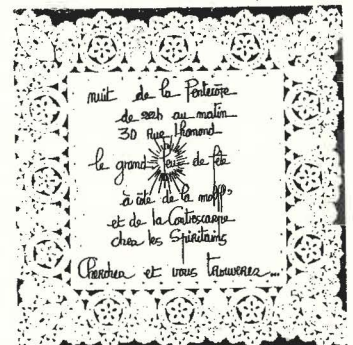 nuit de la Pentecôte
de 22h au matin
30 Rue Lhomond
le grand jeu de fête
à côté de la mouff'
et de la Contrescarpe
chez les Spiritains
Cherchez et vous trouverez...